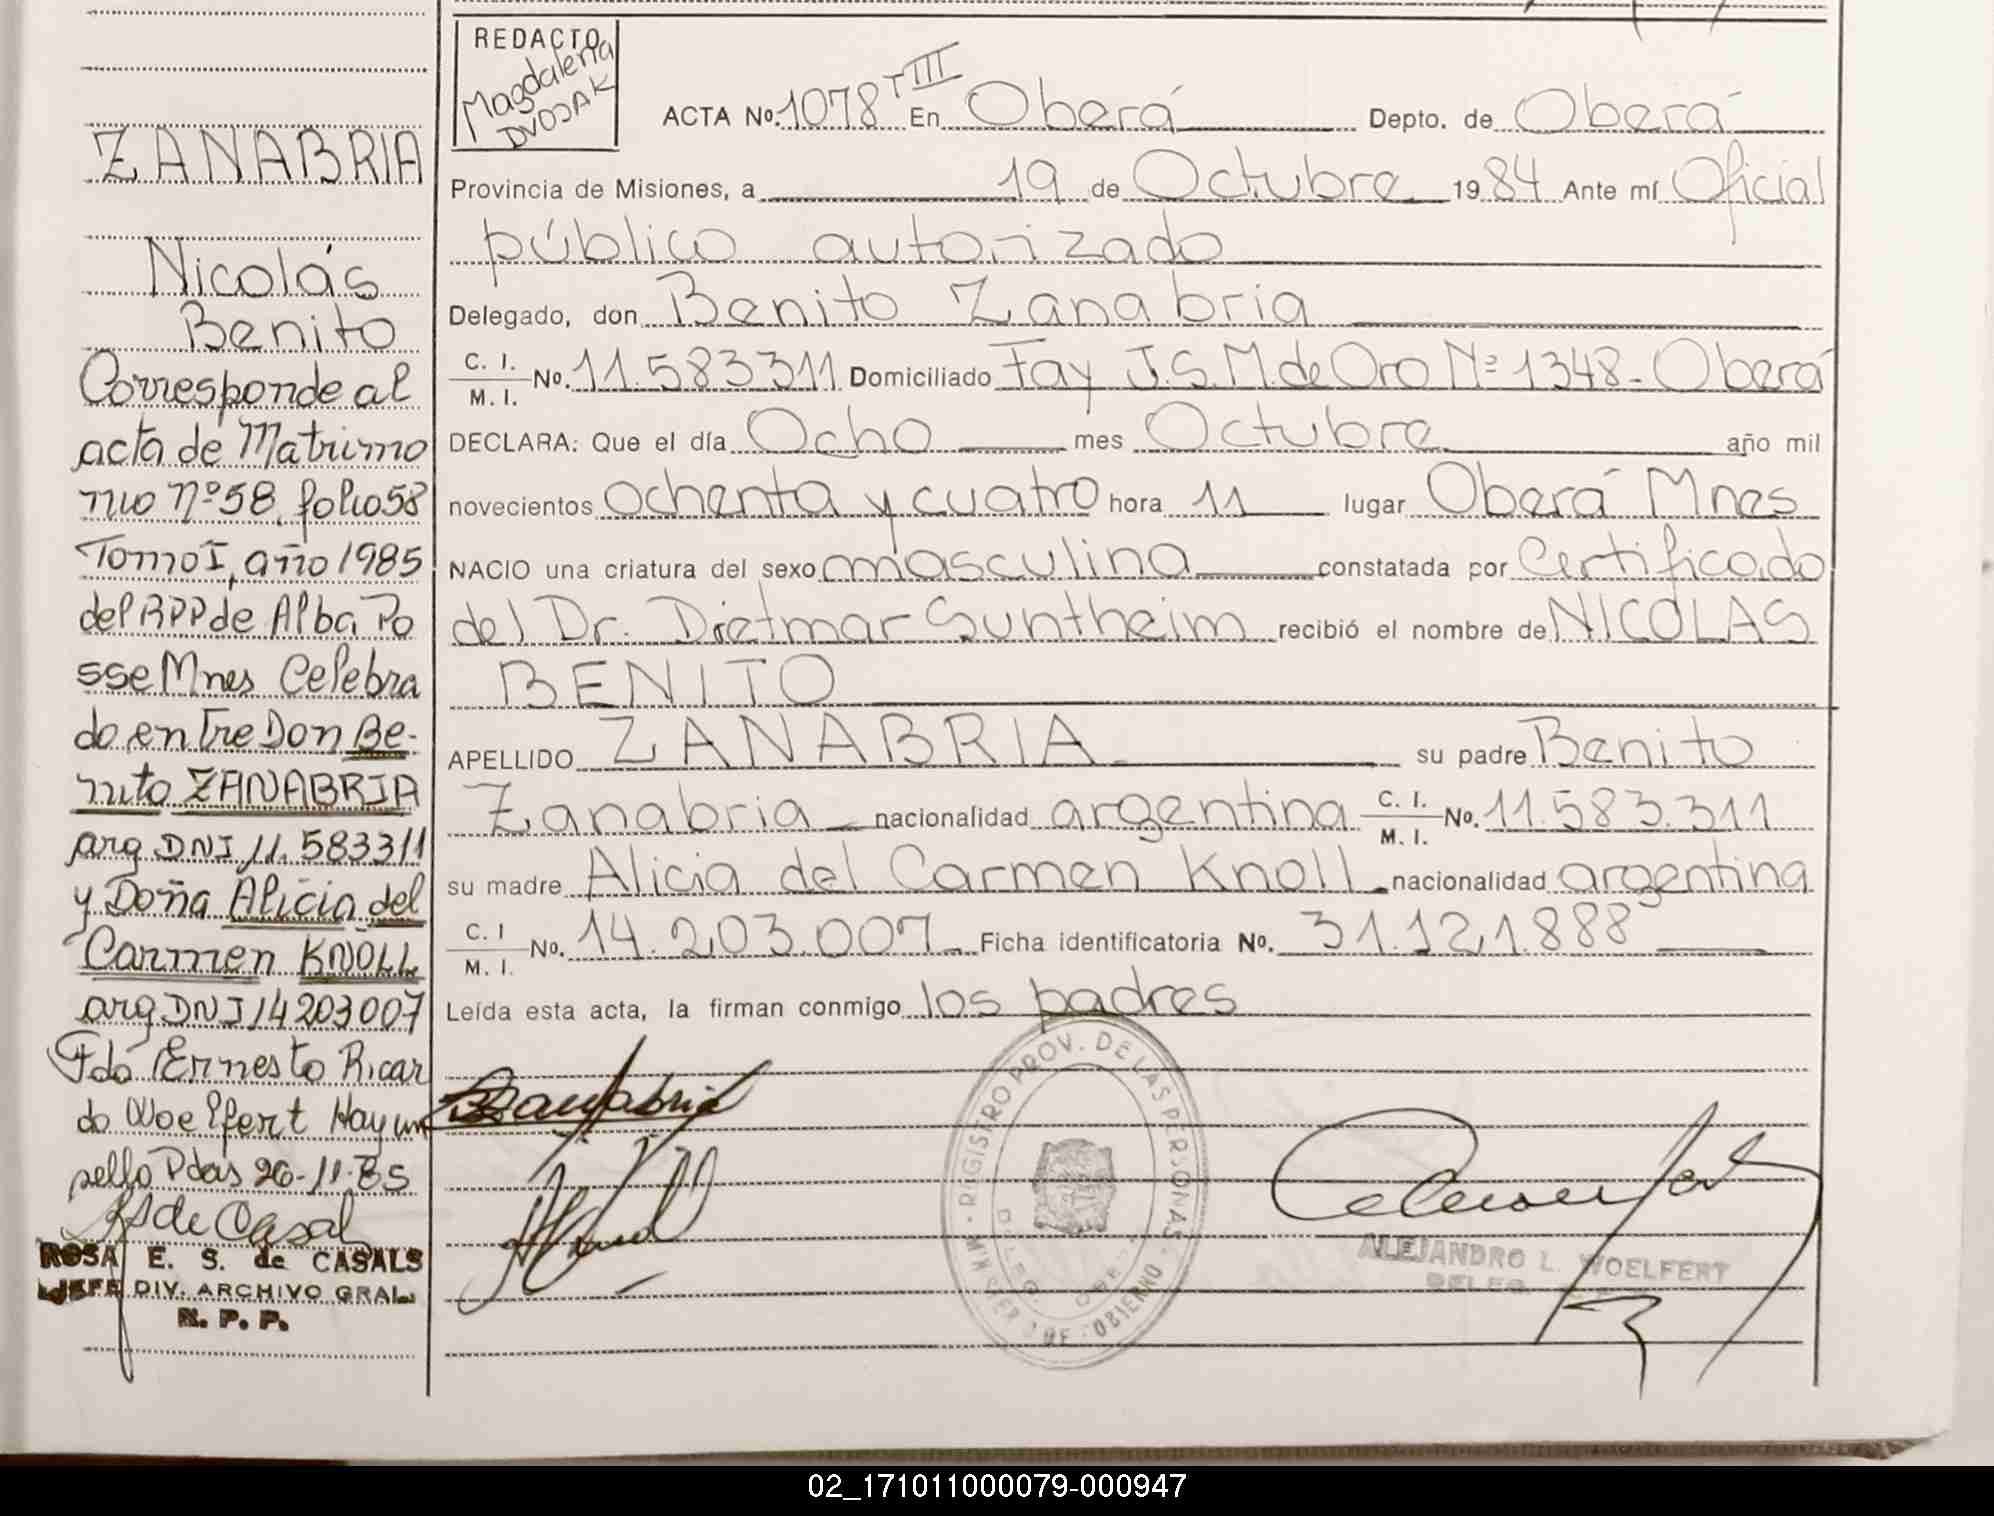 ZANABRIA
Nicolás
Benito
Corresponde al
acta de Matrimo
nio nº 58, folio 58
Tomo I, año 1985
del RPP de Alba Po
sse Mnes Celebra
do entre Don Be-
nito ZANABRIA
arg DNI 11.583311
y Doña Alicia del
Carmen KNOLL
arg DNI 14203007
Fdo Ernesto Ricar
do Woelfert Hay un
sello Pdas 26-11-85
de Casal
ROSA E. S. de CASALS
JEFE DIV. ARCHIVO GRAL.
R. P. P.
REDACTO
Magdalena
DVOJAK
ACTA No. 1078 T III En Oberá Depto. de Oberá
Provincia de Misiones, a 19 de Octubre 19 84 Ante mí Oficial
público autorizado
Delegado, don Benito Zanabria
C. I. / M. I. No. 11.583311 Domiciliado Fay J.S.M. de Oro Nº 1348 - Oberá
DECLARA: Que el día Ocho mes Octubre año mil
novecientos ochenta y cuatro hora 11 lugar Oberá Mnes
NACIO una criatura del sexo masculino constatada por Certificado
del Dr. Dietmar Suntheim recibió el nombre de NICOLAS
BENITO
APELLIDO ZANABRIA su padre Benito
Zanabria nacionalidad argentina C. I. / M. I. No. 11.583.311
su madre Alicia del Carmen Knoll nacionalidad argentina
C. I / M. I. No. 14.203.007 Ficha identificatoria No. 31.121.888
Leída esta acta, la firman conmigo los padres
BZanabria
REGISTRO PROV. DE LAS PERSONAS
ALEJANDRO L. WOELFERT
02_171011000079-000947